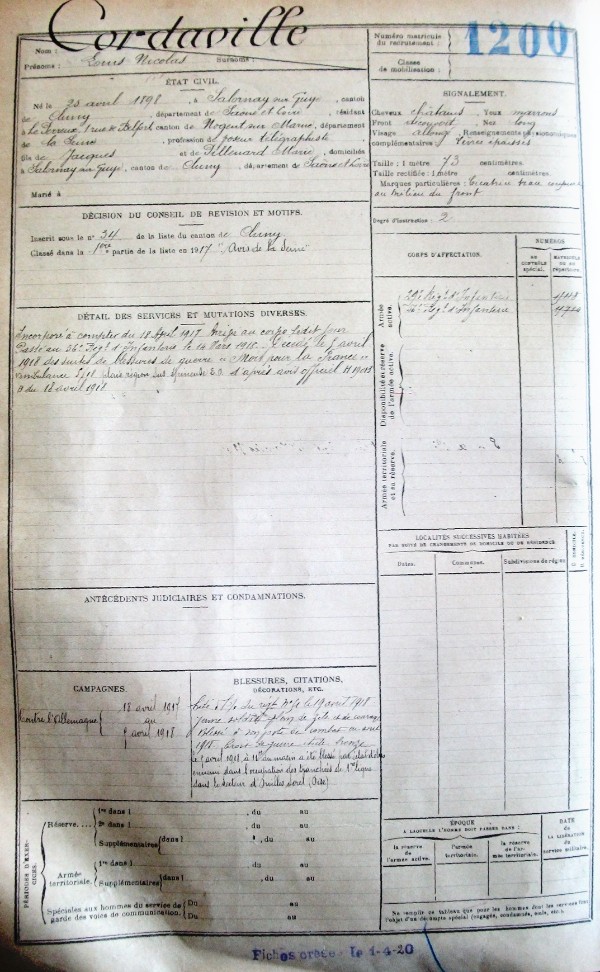 Nom : Cordaville
Prénoms : Louis Nicolas Surnoms :
Numéro matricule du recrutement : 1200
Classe de mobilisation :
ÉTAT CIVIL.
Né le 23 avril 1898, à Salornay sur Guye, canton
de Cluny, département de Saône et Loire, résidant
à Le Perreux, 1 rue de Belfort canton de Nogent sur Marne, département
de la Seine, profession de facteur télégraphiste
fils de Jacques et de Marie, domiciliés
à Salornay sur Guye, canton de Cluny, département de Saône et Loire
Marié à
SIGNALEMENT.
Cheveux châtains Yeux marrons
Front Nez long
Visage allongé Renseignements physionomiques
complémentaires : lèvres épaisses
Taille : 1 mètre 73 centimètres.
Taille rectifiée : 1 mètre centimètres.
Marques particulières : cicatrice
au milieu du front
Degré d'instruction : 2
DÉCISION DU CONSEIL DE REVISION ET MOTIFS.
Inscrit sous le n° 34 de la liste du canton de Cluny
Classé dans la 1ère partie de la liste en 1917 "Avis de la Seine"
DÉTAIL DES SERVICES ET MUTATIONS DIVERSES.
Incorporé à compter du 18 April 1917. Arrivé au corps ledit jour
Passé au 36e Régt d'Infanterie le Mars 1918. Décédé le avril
1918 des suites de blessures de guerre. Mort pour la France
ambulance
d'après avis officiel
du 18 avril 1918
CORPS D'AFFECTATION.
NUMÉROS
AU CONTRÔLE SPÉCIAL.
MATRICULE OU AU RÉPERTOIRE.
Armée active.
Régt d'Infanterie
36e Régt d'Infanterie
Disponibilité ou réserve de l'armée active.
Armée territoriale et sa réserve.
LOCALITÉS SUCCESSIVES HABITÉES
PAR SUITE DE CHANGEMENTS DE DOMICILE OU DE RÉSIDENCE
Dates. Communes. Subdivisions de région D. DOMICILE. R. RÉSIDENCE.
ANTÉCÉDENTS JUDICIAIRES ET CONDAMNATIONS.
CAMPAGNES.
Contre l'Allemagne
18 avril 1917
au
avril 1918
BLESSURES, CITATIONS, DÉCORATIONS, ETC.
Cité à l'o. du régt le 19 avril 1918
Jeune soldat plein de
Blessé à son poste de combat en avril
1918. Croix de guerre étoile bronze
le avril 1918 à du matin a été blessé par éclat d'obus
ennemi dans l'occupation des tranchées de 1ère ligne
dans le secteur d' (Oise)
PÉRIODES D'EXERCICES.
Réserve....
1re dans l , du au
2e dans l , du au
Supplémentaires (dans l , du au
Armée territoriale.
1re dans l , du au
Supplémentaires (dans l , du au
Spéciales aux hommes du service de garde des voies de communication.
Du au
Du au
ÉPOQUE
A LAQUELLE L'HOMME DOIT PASSER DANS :
la réserve de l'armée active.
l'armée territoriale.
la réserve de l'armée territoriale.
DATE de LA LIBÉRATION du service militaire.
Ne remplir ce tableau que pour les hommes dont les services font
l'objet d'un décompte spécial (engagés, condamnés, omis, etc.).
Fiches créée le 1-4-20